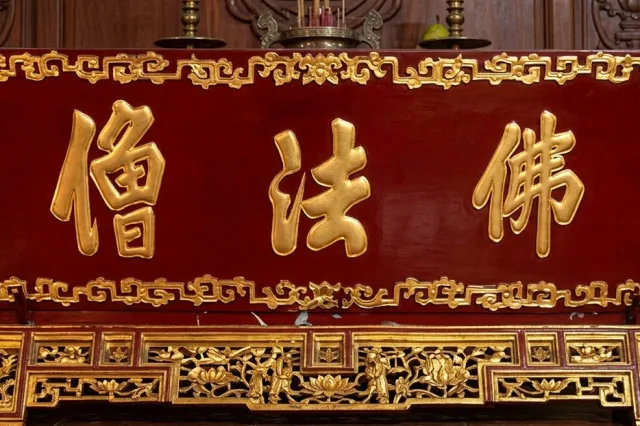 佛法僧